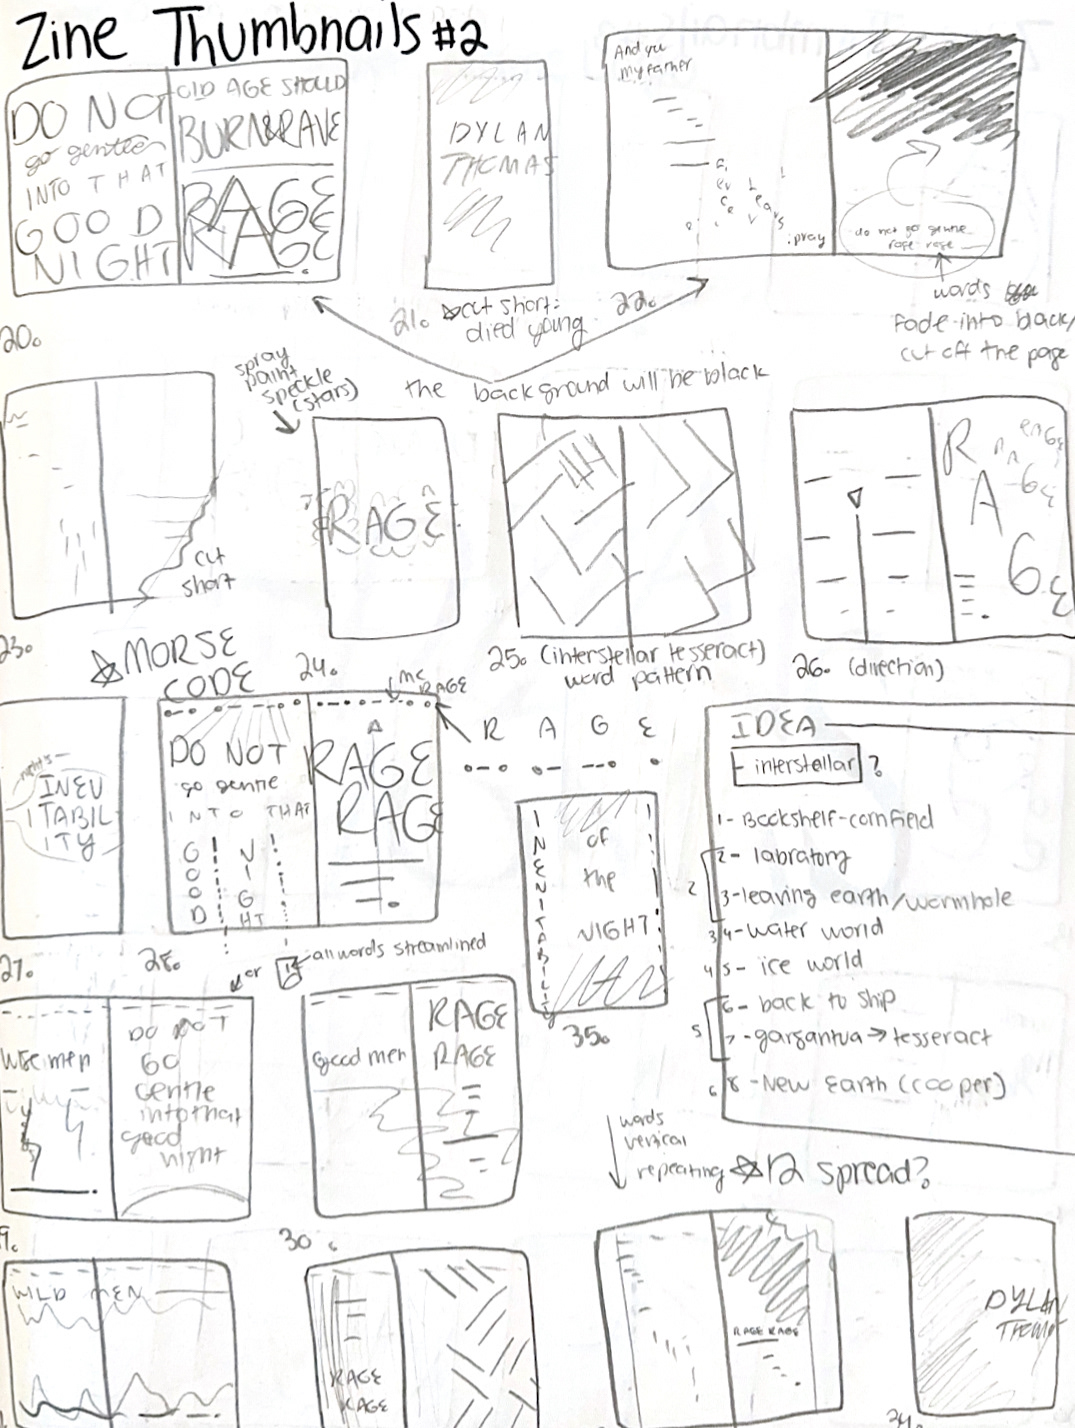 Zine Thumbnails #2
DO NOT
go gentle
INTO THAT
GOOD
NIGHT
OLD AGE SHOULD
BURN & RAVE
RAGE
RAGE
20.
DYLAN
THOMAS
21. cut short:
died young
And you
my father
pray
do not go gentle
rage rage
22.
words
fade into black/
cut off the page
the background will be black
cut
short
23.
spray
paint
speckle
(stars)
RAGE
24.
25. (interstellar tesseract)
word pattern
RAGE
26. (direction)
MORSE
CODE
INEV
ITABIL
ITY
27.
MC
RAGE
DO NOT
go gentle
INTO THAT
GOOD
NIGHT
RAGE
RAGE
28.
or
all words streamlined
R A G E
INEVITABILITY
of
the
NIGHT
35.
IDEA
- interstellar ?
1- Bookshelf-cornfield
2- labratory
3- leaving earth/wormhole
2
3 4- water world
4 5- ice world
6- back to ship
5
7- gargantua → tesseract
6 8- New Earth (cooper)
wise men
DO NOT
GO
gentle
into that
good
night
good men
RAGE
RAGE
30.
words
vertical
repeating
12 spread?
WILD MEN
RAGE
RAGE
RAGE RAGE
DYLAN
THOMAS